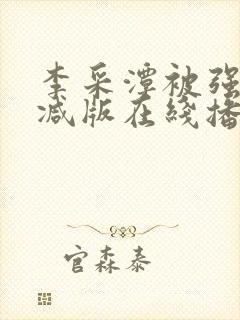 李采潭被强
减版在线播
官森泰